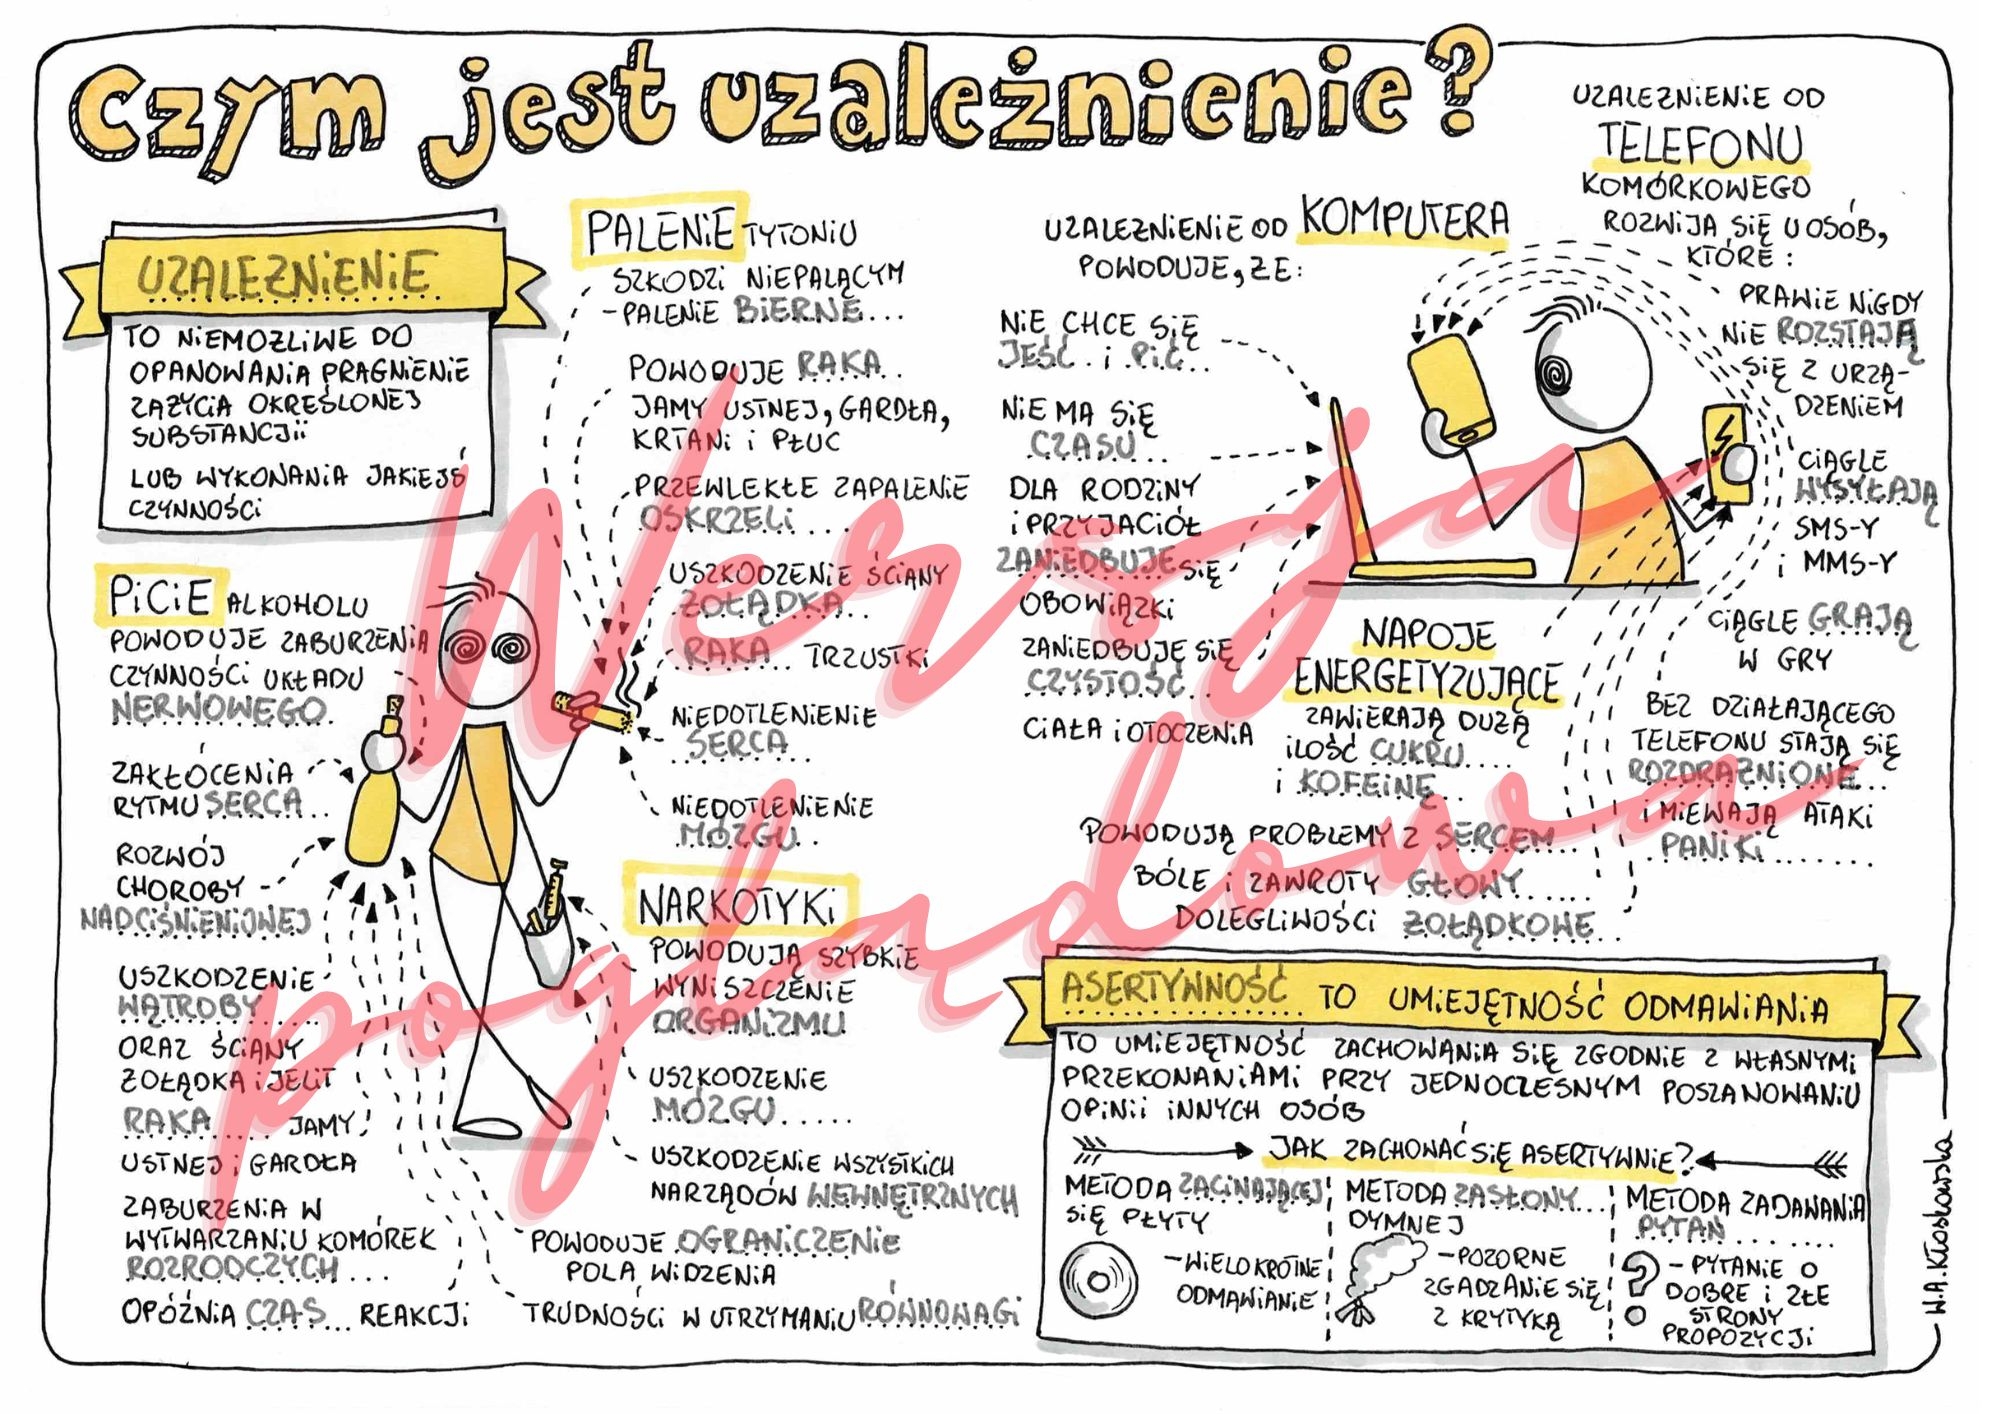 Czym jest uzależnienie?
UZALEŻNIENIE
TO NIEMOŻLIWE DO
OPANOWANIA PRAGNIENIE
ZAŻYCIA OKREŚLONEJ
SUBSTANCJI
LUB WYKONANIA JAKIEJŚ
CZYNNOŚCI
PICIE ALKOHOLU
POWODUJE ZABURZENIA
CZYNNOŚCI UKŁADU
NERWOWEGO
ZAKŁÓCENIA
RYTMU SERCA...
ROZWÓJ
CHOROBY
NADCIŚNIENIOWEJ
USZKODZENIE
WĄTROBY....
ORAZ ŚCIANY
ŻOŁĄDKA i JELIT
RAKA.... JAMY
USTNEJ i GARDŁA
ZABURZENIA W
WYTWARZANIU KOMÓREK
ROZRODCZYCH...
OPÓŹNIA CZAS... REAKCJI
POWODUJE OGRANICZENIE
POLA WIDZENIA
TRUDNOŚCI W UTRZYMANIU RÓWNOWAGI
PALENIE TYTONIU
SZKODZI NIEPALĄCYM
-PALENIE BIERNE...
POWODUJE RAKA..
JAMY USTNEJ, GARDŁA,
KRTANI I PŁUC
PRZEWLEKŁE ZAPALENIE
OSKRZELI....
USZKODZENIE ŚCIANY
ŻOŁĄDKA..
RAKA... TRZUSTKI
NIEDOTLENIENIE
SERCA...
NIEDOTLENIENIE
MÓZGU...
NARKOTYKI
POWODUJĄ SZYBKIE
WYNISZCZENIE
ORGANIZMU
USZKODZENIE
MÓZGU.....
USZKODZENIE WSZYSTKICH
NARZĄDÓW WEWNĘTRZNYCH
UZALEŻNIENIE OD KOMPUTERA
POWODUJE, ŻE:
NIE CHCE SIĘ
JEŚĆ.. i PIĆ...
NIE MA SIĘ
CZASU...
DLA RODZINY
i PRZYJACIÓŁ
ZANIEDBUJE SIĘ
OBOWIĄZKI
ZANIEDBUJE SIĘ
CZYSTOŚĆ..
CIAŁA i OTOCZENIA
UZALEŻNIENIE OD
TELEFONU
KOMÓRKOWEGO
ROZWIJA SIĘ U OSÓB,
KTÓRE:
PRAWIE NIGDY
NIE ROZSTAJĄ
SIĘ Z URZĄ-
DZENIEM
CIĄGLE
WYSYŁAJĄ
SMS-Y
i MMS-Y
CIĄGLE GRAJĄ
W GRY
BEZ DZIAŁAJĄCEGO
TELEFONU STAJĄ SIĘ
ROZDRAŻNIONE...
I MIEWAJĄ ATAKI
PANIKI.......
NAPOJE
ENERGETYZUJĄCE
ZAWIERAJĄ DUŻĄ
ILOŚĆ CUKRU....
i KOFEINĘ..
POWODUJĄ PROBLEMY Z SERCEM...
BÓLE I ZAWROTY GŁOWY.....
DOLEGLIWOŚCI ŻOŁĄDKOWE..
ASERTYWNOŚĆ TO UMIEJĘTNOŚĆ ODMAWIANIA
TO UMIEJĘTNOŚĆ ZACHOWANIA SIĘ ZGODNIE Z WŁASNYMI
PRZEKONANIAMI PRZY JEDNOCZESNYM POSZANOWANIU
OPINII INNYCH OSÓB
JAK ZACHOWAĆ SIĘ ASERTYWNIE?
METODA ZACINAJĄCEJ
SIĘ PŁYTY
-WIELOKROTNE
ODMAWIANIE
METODA ZASŁONY...
DYMNEJ
-POZORNE
ZGADZANIE SIĘ
Z KRYTYKĄ
METODA ZADAWANIA
PYTAŃ.......
- PYTANIE O
DOBRE I ZŁE
STRONY
PROPOZYCJI
W.A.Kłoskowska
Wersja
poglądowa